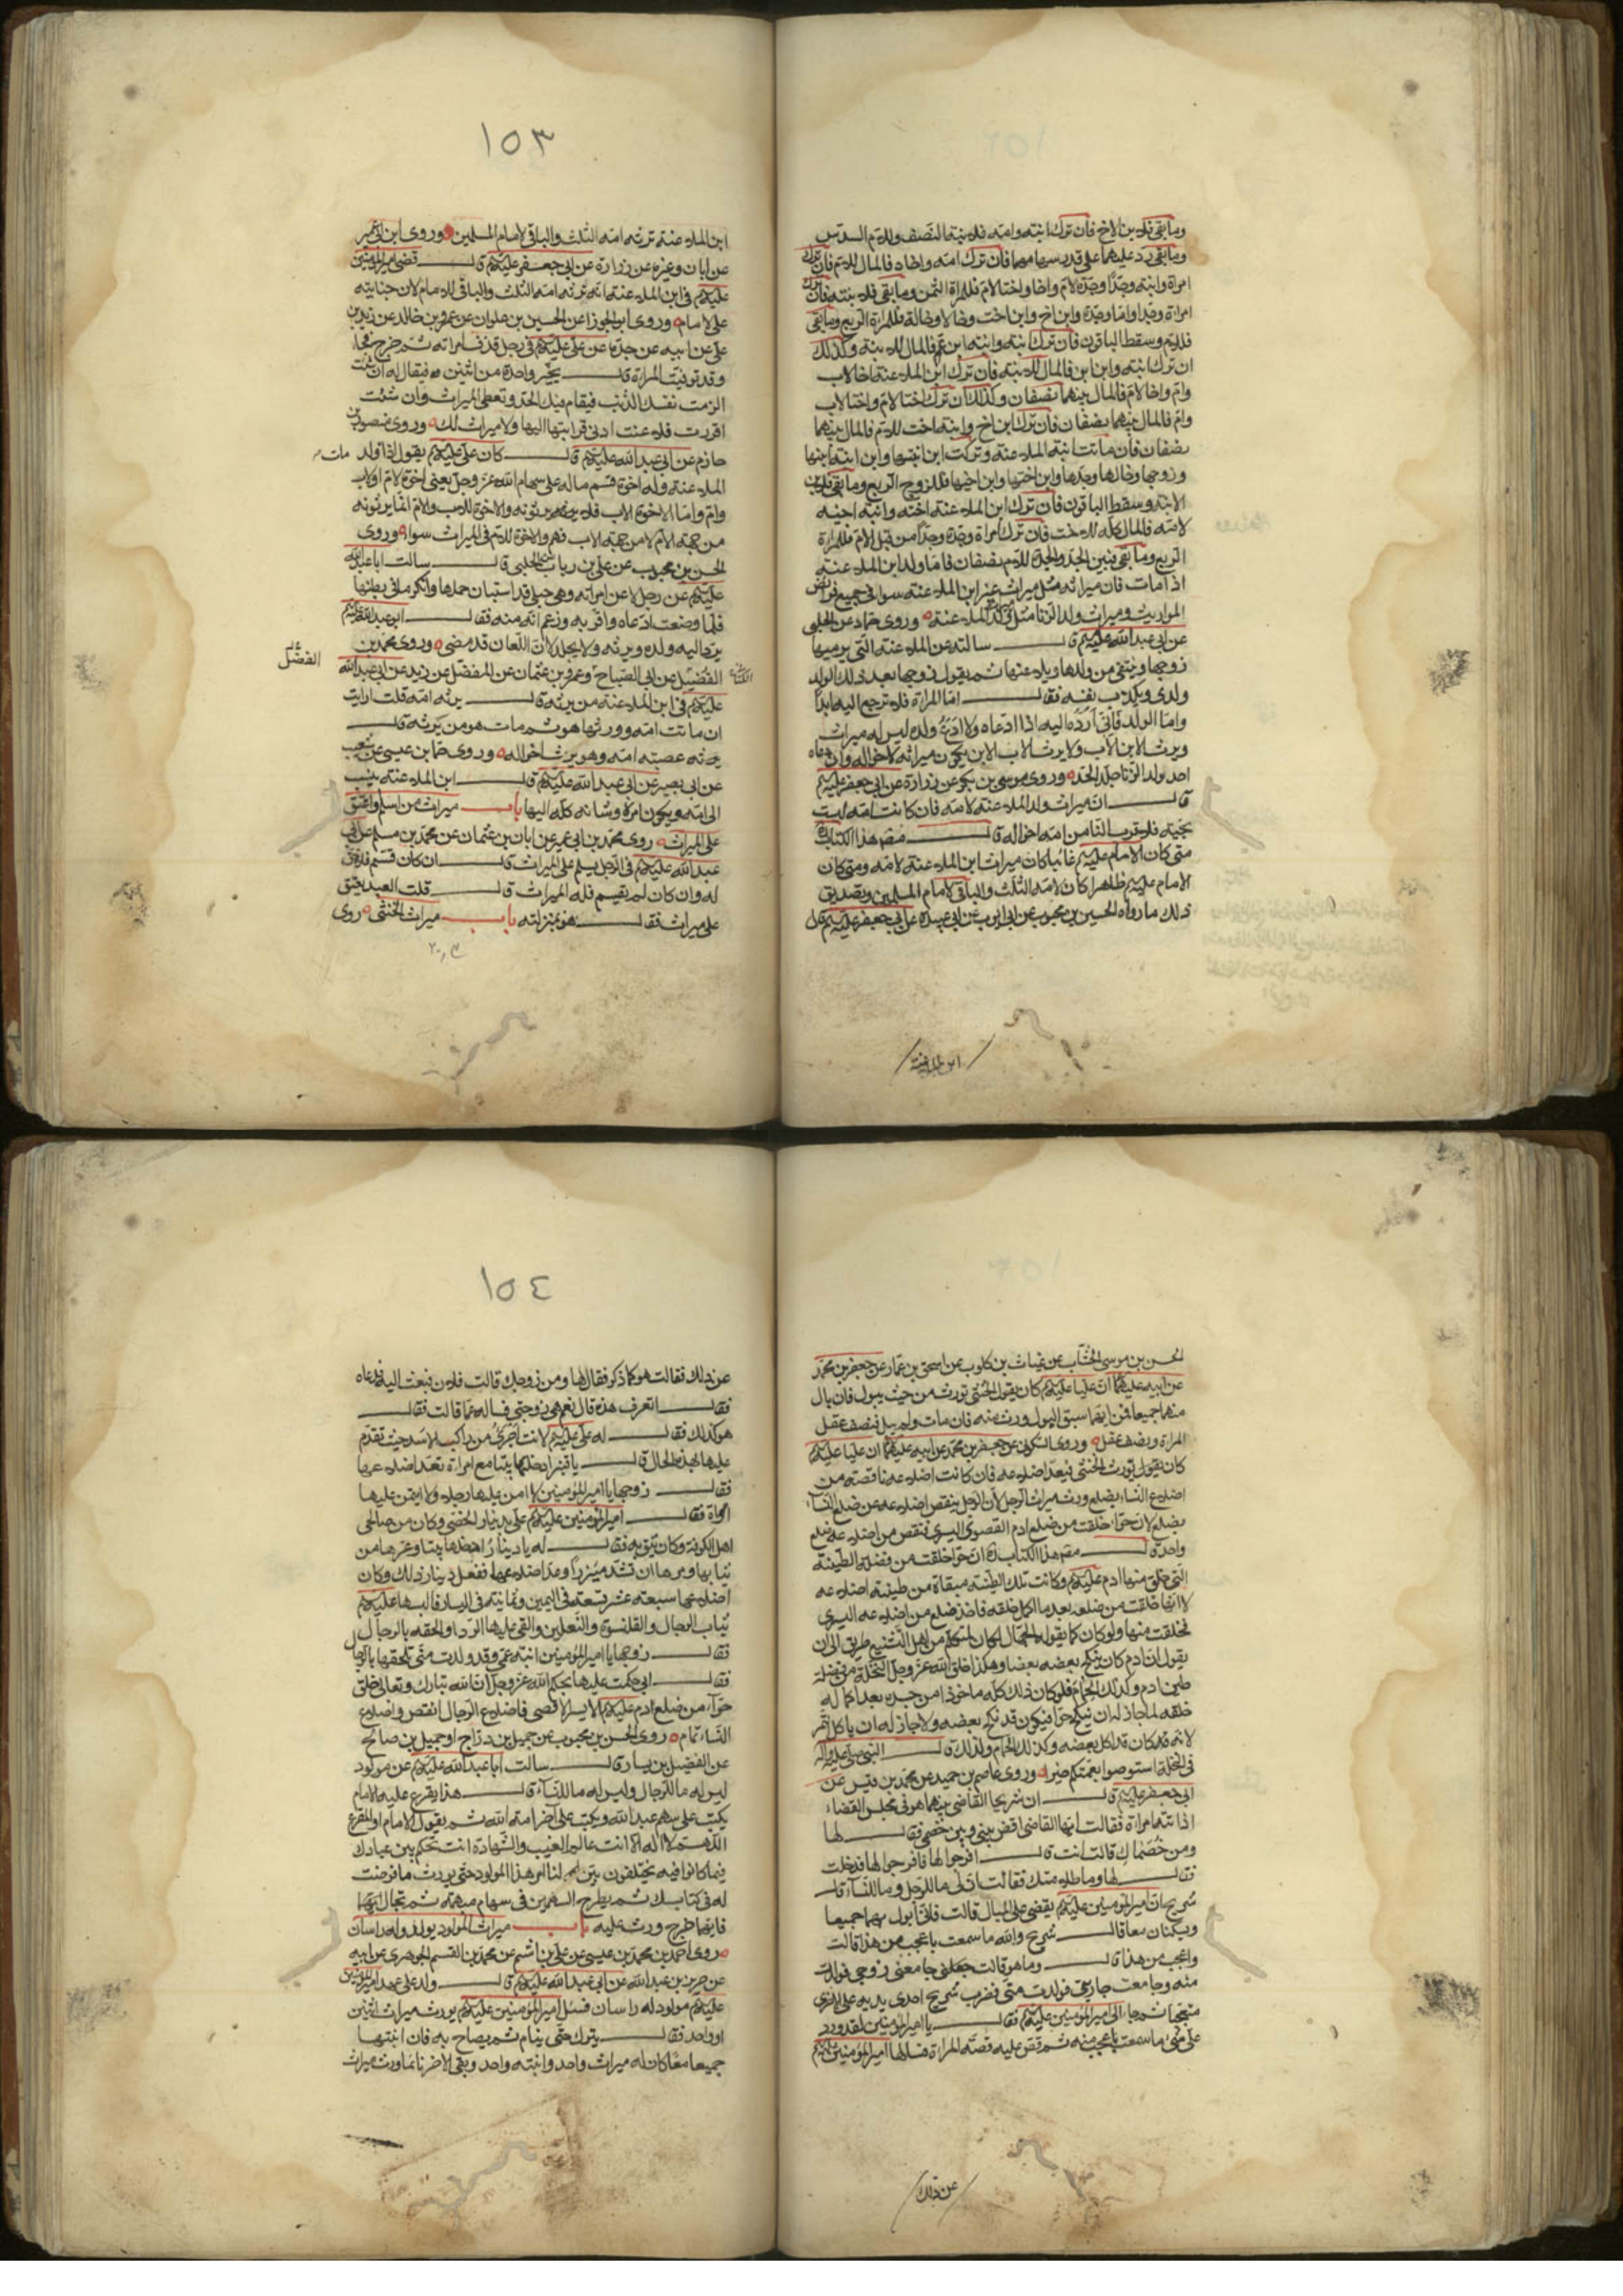 وما بقي فلابن الاخ فان ترك ابنته وامه فلابنته النصف وللام السدس
وما بقي رد عليهما على قدر سهامهما فان ترك امه واخاه فالمال للام فان ترك
امراة وابنة وجدا وجدة لام واخا واختا لام فللمراة الثمن وما بقي فللابنة فان ترك
امراة وجدا واما وجدة وابن اخ وابن اخت وخالا وخالة فللمراة الربع وما بقي
فللام وسقط الباقون فان ترك ابنته وابنة ابن عم فالمال للابنة وكذلك
ان ترك ابنته وابن ابن فالمال للابنة فان ترك ابن الملاعنة اخا لاب
وام واخا لام فالمال بينهما نصفان وكذلك ان ترك اختا لام واختا لاب
وام فالمال بينهما نصفان فان ترك ابن اخ وابنة اخت للام فالمال بينهما
نصفان فان ماتت ابنة الملاعنة وتركت ابن ابنتها وابن ابنة ابنها
وزوجها وخالها وجدها وابن اختها وابن اخيها فللزوج الربع وما بقي فلابن
الابنة وسقط الباقون فان ترك ابن الملاعنة اخته وابنة اخيه
لامه فالمال كله للاخت فان ترك امراة وجدة وجدا من قبل الام فللمراة
الربع وما بقي فبين الجد والجدة للام نصفان فاما ولد ابن الملاعنة
اذا مات فان ميراثه مثل ميراث غير ابن الملاعنة سوا في جميع فرائض
المواريث وميراث ولد الزنا مثل ولد الملاعنة وروى حماد عن الحلبي
عن ابي عبد الله عليه السلم قال سالته عن الملاعنة التي يرميها
زوجها وينتفي من ولدها ويلاعنها ثم يقول زوجها بعد ذلك الولد
ولدي ويكذب نفسه فقال اما المراة فلا ترجع اليه ابدا
واما الولد فاني ارده اليه اذا ادعاه ولا ادع ولده ليس له ميراث
ويرث الابن الاب ولا يرث الاب الابن يكون ميراثه لاخواله وان دعاه
احد ولد الزنا جلد الحد وروى موسى بن بكر عن زرارة عن ابي جعفر عليه السلم
قال ان ميراث ولد الملاعنة لامه فان كانت امه ليست
بحية فلاقرب الناس من امه اخواله قال مصنف هذا الكتاب
متى كان الامام عليه السلم غائبا كان ميراث ابن الملاعنة لامه ومتى كان
الامام عليه السلم ظاهرا كان لامه الثلث والباقي لامام المسلمين وتصديق
ذلك ما رواه الحسين بن محبوب عن ابي ايوب عن ابي عبيدة عن ابي جعفر عليه السلم قال
ابن الملاعنة
١٥٣
ابن الملاعنة ترثه امه الثلث والباقي لامام المسلمين وروى ابن ابي عمير
عن ابان وغيره عن زرارة عن ابي جعفر عليه السلم قال قضى امير المؤمنين
عليه السلم في ابن الملاعنة انه ترثه امه الثلث والباقي للامام لان جنايته
على الامام وروى ابو الجوزا عن الحسين بن علوان عن عمرو بن خالد عن زيد بن
علي عن ابيه عن جده عن علي عليه السلم في رجل قذف امراته ثم خرج فجا
وقد توفيت المراة قال يخير واحدة من اثنين فيقال له ان شئت
الزمت نفسك الذنب فيقام فيك الحد وتعطى الميراث وان شئت
اقررت فلاعنت ادنى قرابتها اليها ولا ميراث لك وروى منصور بن
حازم عن ابي عبد الله عليه السلم قال كان علي عليه السلم يقول اذا ولد مات
الملاعنة وله اخوة قسم ماله على سهام الله عز وجل يعني اخوة لام او لاب
وام واما الاخوة لاب فلا يرثونه والاخوة للاب والام انما يرثونه
من جهة الام لا من جهة الاب فهم والاخوة للام في الميراث سوا وروى
الحسن بن محبوب عن علي بن رياب عن الحلبي قال سالت ابا عبد الله
عليه السلم عن رجل لاعن امراته وهي حبلى قد استبان حملها وانكر ما في بطنها
فلما وضعت ادعاه واقر به وزعم انه منه فقال ابو عبد الله عليه السلم
يرد اليه ولده ويرثه ولا يجلد لان اللعان قد مضى وروى محمد بن
الفضيل عن ابي الصباح وعمرو بن عثمان عن المفضل عن زيد عن ابي عبد الله
عليه السلم في ابن الملاعنة من يرثه قال يرثه امه قلت ارايت
ان ماتت امه وورثها هو ثم مات هو من يرثه قال
يرثه عصبة امه وهو يرث اخواله وروى حماد بن عيسى عن شعيب
عن ابي بصير عن ابي عبد الله عليه السلم قال ابن الملاعنة ينسب
الى امه ويكون امره وشانه كله اليها باب ميراث من اسلم واعتق
على الميراث روى محمد بن ابي عمير عن ابان بن عثمان عن محمد بن مسلم عن ابي
عبد الله عليه السلم في الرجل يسلم على الميراث قال ان كان قسم فلا حق
له وان كان لم يقسم فله الميراث قال قلت العبد يعتق
على ميراث فقال هو بمنزلته باب ميراث الخنثى روى
الحسن بن موسى الخشاب عن غياث بن كلوب عن اسحق بن عمار عن جعفر بن محمد
عن ابيه عليهما السلم ان عليا عليه السلم كان يقول الخنثى يورث من حيث يبول فان بال
منهما جميعا فمن ايهما سبق البول ورث منه فان مات ولم يبل فنصف عقل
المراة ونصف عقل وروى السكوني عن جعفر بن محمد عن ابيه عليهما السلم ان عليا عليه السلم
كان يقول يورث الخنثى فيعد اضلاعه فان كانت اضلاعه ناقصة من
اضلاع النساء بضلع ورث ميراث الرجل لان الرجل ينقص اضلاعه عن ضلع النساء
بضلع لان حوا خلقت من ضلع ادم القصوى اليسرى فنقص من اضلاعه ضلع
واحدة قال مصنف هذا الكتاب ان حوا خلقت من فضلة الطينة
التي خلق منها ادم عليه السلم وكانت تلك الطينة مبقاة من طينة اضلاعه
لا انها خلقت من ضلعه بعد ما اكمل خلقه فاخذ ضلع من اضلاعه اليسرى
فخلقت منها ولو كان كما يقول الجهال لكان لمتكلم من اهل التشنيع طريق الى ان
يقول ان ادم كان ينكح بعضه بعضا وهكذا خلق الله عز وجل النخلة من فضلة
طين ادم وكذلك الحمام فلو كان ذلك كله ماخوذا من جسده بعد اكمال
خلقه لما جاز له ان ينكح حوا فيكون قد نكح بعضه ولا جاز له ان ياكل التمر
لانه قد كان قد اكل بعضه وكذلك الحمام ولذلك قال النبي صلى الله عليه واله
في النخلة استوصوا بعمتكم خيرا وروى عاصم بن حميد عن محمد بن قيس عن
ابي جعفر عليه السلم قال ان شريحا القاضي بينما هو في مجلس القضاء
اذ اتته امراة فقالت ايها القاضي اقض بيني وبين خصمي فقال لها
ومن خصمك قالت انت قال افرجوا لها فافرجوا لها فدخلت
فقال لها وما ظلامتك فقالت ان لي ما للرجل وما للنساء قال
شريح ان امير المؤمنين عليه السلم يقضي على المبال قالت فاني ابول بهما جميعا
ويسكنان معا قال شريح والله ما سمعت باعجب من هذا قالت
واعجب من هذا قال وما هو قالت جعلني جامعني زوجي فولدت
منه وجامعت جاريتي فولدت مني فضرب شريح احدى يديه على الاخرى
متعجبا ثم جاء الى امير المؤمنين عليه السلم فقال يا امير المؤمنين لقد ورد
علي شيء ما سمعت باعجب منه ثم قص عليه قصة المراة فسالها امير المؤمنين عليه السلم
عن ذلك
١٥٤
عن ذلك فقالت هو كما ذكر فقال لها ومن زوجك قالت فلان فبعث اليه فدعاه
فقال اتعرف هذه قال نعم هي زوجتي فساله عما قالت فقال
هو كذلك فقال له علي عليه السلم لانت اجرى من راكب الاسد حيث تقدم
عليها بهذه الحال قال يا قنبر ادخلها بيتا مع امراة تعد اضلاعها
فقال زوجها يا امير المؤمنين لا امن عليها رجلا ولا ايتمن عليها
امراة فقال امير المؤمنين عليه السلم علي بدينار الخصي وكان من صالحي
اهل الكوفة وكان يثق به فقال له يا دينار ادخلها بيتا وعرها من
ثيابها ومرها ان تشد ميزرا وعد اضلاعها ففعل دينار ذلك وكان
اضلاعها سبعة عشر تسعة في اليمين وثمانية في اليسار فالبسها عليه السلم
ثياب الرجال والقلنسوة والنعلين والقى عليها الردا والحقه بالرجال
فقال زوجها يا امير المؤمنين ابنة عمي وقد ولدت مني تلحقها بالرجال
فقال اني حكمت عليها بحكم الله عز وجل ان الله تبارك وتعالى خلق
حواء من ضلع ادم عليه السلم الايسر الاقصى فاضلاع الرجال انقص واضلاع
النساء تمام وروى الحسن بن محبوب عن جميل بن دراج او جميل بن صالح
عن الفضيل بن يسار قال سالت ابا عبد الله عليه السلم عن مولود
ليس له ما للرجال وليس له ما للنساء قال هذا يقرع عليه الامام
يكتب على سهم عبد الله ويكتب على اخر امة الله ثم يقول الامام او المقرع
اللهم لا اله الا انت عالم الغيب والشهادة انت تحكم بين عبادك
فيما كانوا فيه يختلفون بين لنا امر هذا المولود حتى يورث ما فرضت
له في كتابك ثم يطرح السهمين في سهام مبهمة ثم تجال ايهما
فايهما خرج ورث عليه باب ميراث المولود يولد وله راسان
روى احمد بن محمد بن عيسى عن علي بن اشيم عن محمد بن القسم الجوهري عن ابيه
عن حريز بن عبد الله عن ابي عبد الله عليه السلم قال ولد على عهد امير المؤمنين
عليه السلم مولود له راسان فسئل امير المؤمنين عليه السلم يورث ميراث اثنين
او واحد فقال يترك حتى ينام ثم يصاح به فان انتبها
جميعا معا كان له ميراث واحد وان انتبه واحد وبقي الاخر نائما ورث ميراث